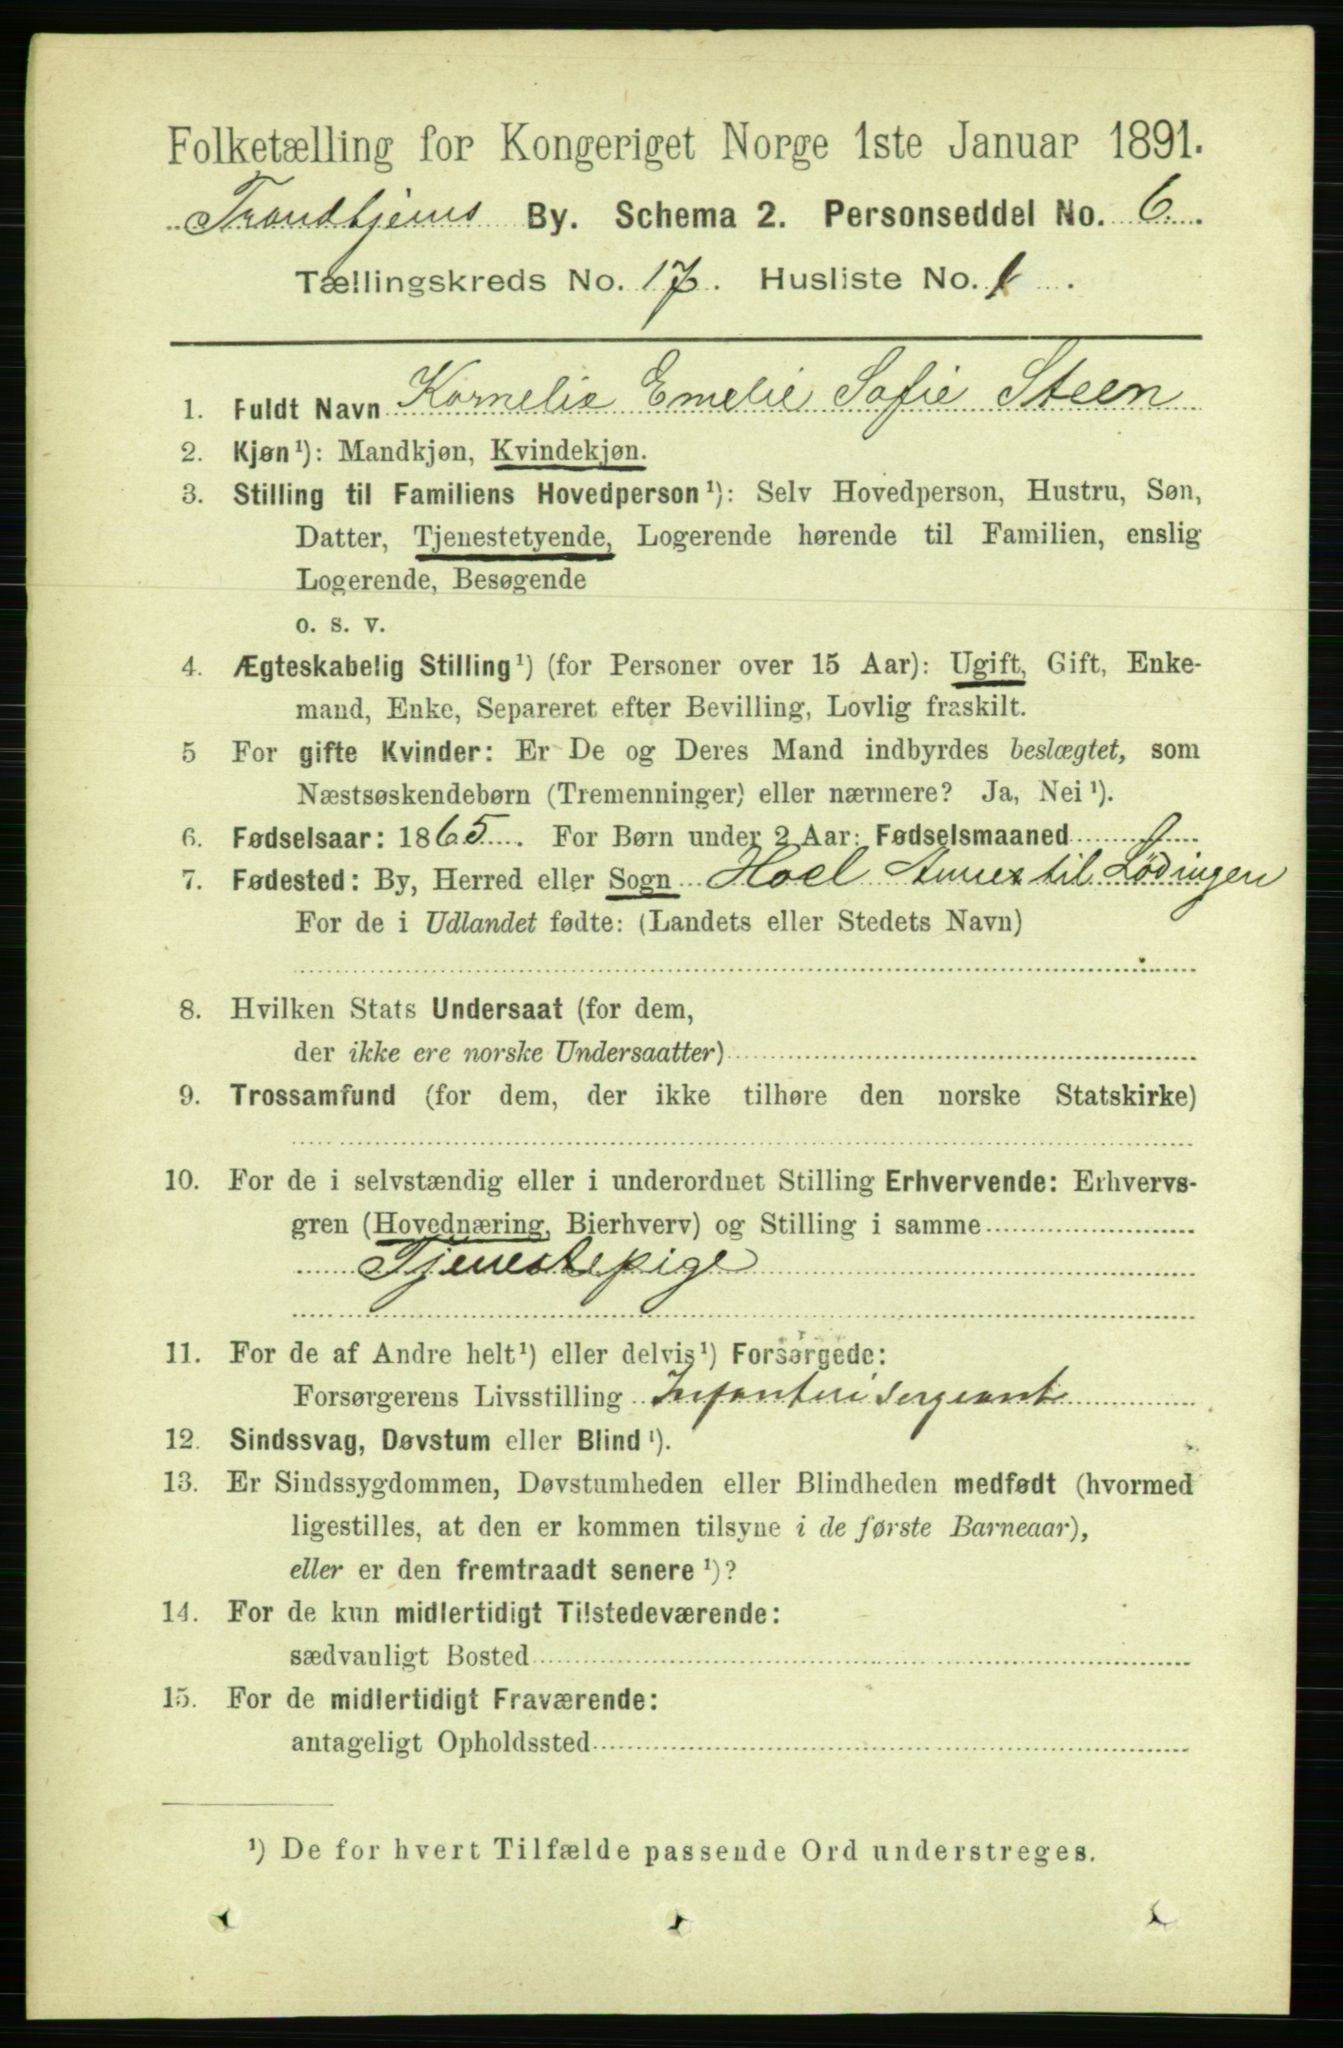 Folketælling for Kongeriget Norge 1ste Januar 1891.
Trondhjems By. Schema 2. Personseddel No. 6.
Tællingskreds No. 17. Husliste No. 1.
1. Fuldt Navn Kornelia Emelie Sofie Steen
2. Kjøn¹): Mandkjøn, Kvindekjøn.
3. Stilling til Familiens Hovedperson¹): Selv Hovedperson, Hustru, Søn,
Datter, Tjenestetyende, Logerende hørende til Familien, enslig
Logerende, Besøgende
o. s. v.
4. Ægteskabelig Stilling¹) (for Personer over 15 Aar): Ugift, Gift, Enke-
mand, Enke, Separeret efter Bevilling, Lovlig fraskilt.
5 For gifte Kvinder: Er De og Deres Mand indbyrdes beslægtet, som
Næstsøskendebørn (Tremenninger) eller nærmere? Ja, Nei¹).
6. Fødselsaar: 1865. For Børn under 2 Aar: Fødselsmaaned
7. Fødested: By, Herred eller Sogn Hoel Annex til Lødingen
For de i Udlandet fødte: (Landets eller Stedets Navn)
8. Hvilken Stats Undersaat (for dem,
der ikke ere norske Undersaatter)
9. Trossamfund (for dem, der ikke tilhøre den norske Statskirke)
10. For de i selvstændig eller i underordnet Stilling Erhvervende: Erhvervs-
gren (Hovednæring, Bierhverv) og Stilling i samme
Tjenestepige
11. For de af Andre helt¹) eller delvis¹) Forsørgede:
Forsørgerens Livsstilling Infanterisergeant
12. Sindssvag, Døvstum eller Blind¹).
13. Er Sindssygdommen, Døvstumheden eller Blindheden medfødt (hvormed
ligestilles, at den er kommen tilsyne i de første Barneaar),
eller er den fremtraadt senere¹)?
14. For de kun midlertidigt Tilstedeværende:
sædvanligt Bosted
15. For de midlertidigt Fraværende:
antageligt Opholdssted
¹) De for hvert Tilfælde passende Ord understreges.